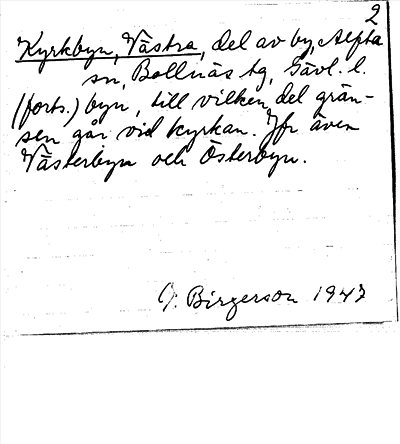 2
Kyrkbyn, Västra, del av by, Alfta
sn, Bollnäs tg, Gävl. l.
(forts.) byn, till vilken del grän-
sen går vid kyrkan. Jfr även
Västerbyn och Österbyn.
G. Birgerson 1947